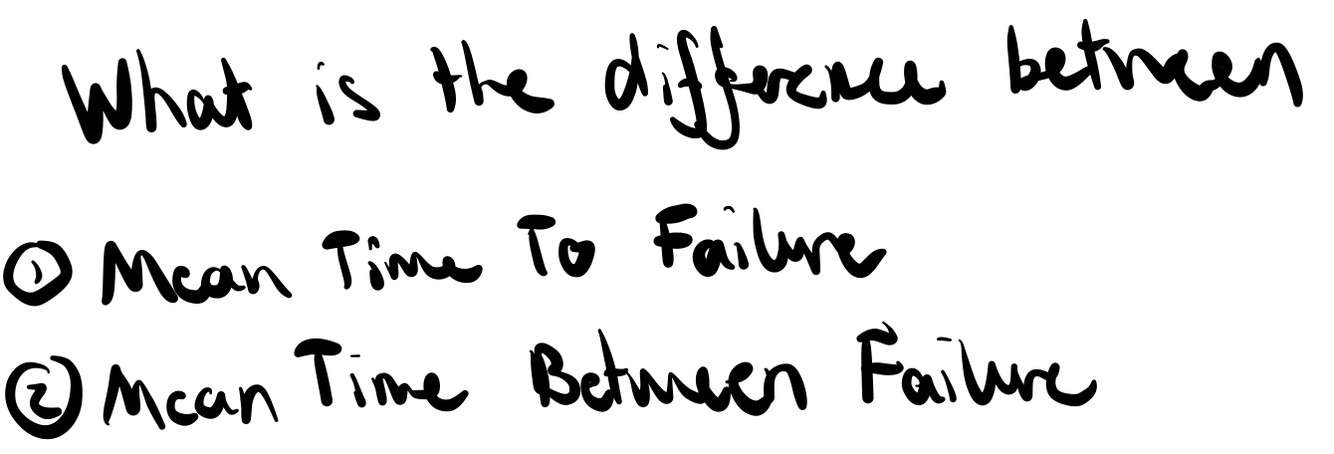 What is the difference between
① Mean Time To Failure
② Mean Time Between Failure